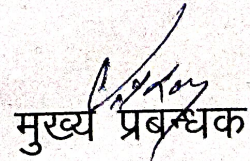 मुख्य प्रबन्धक